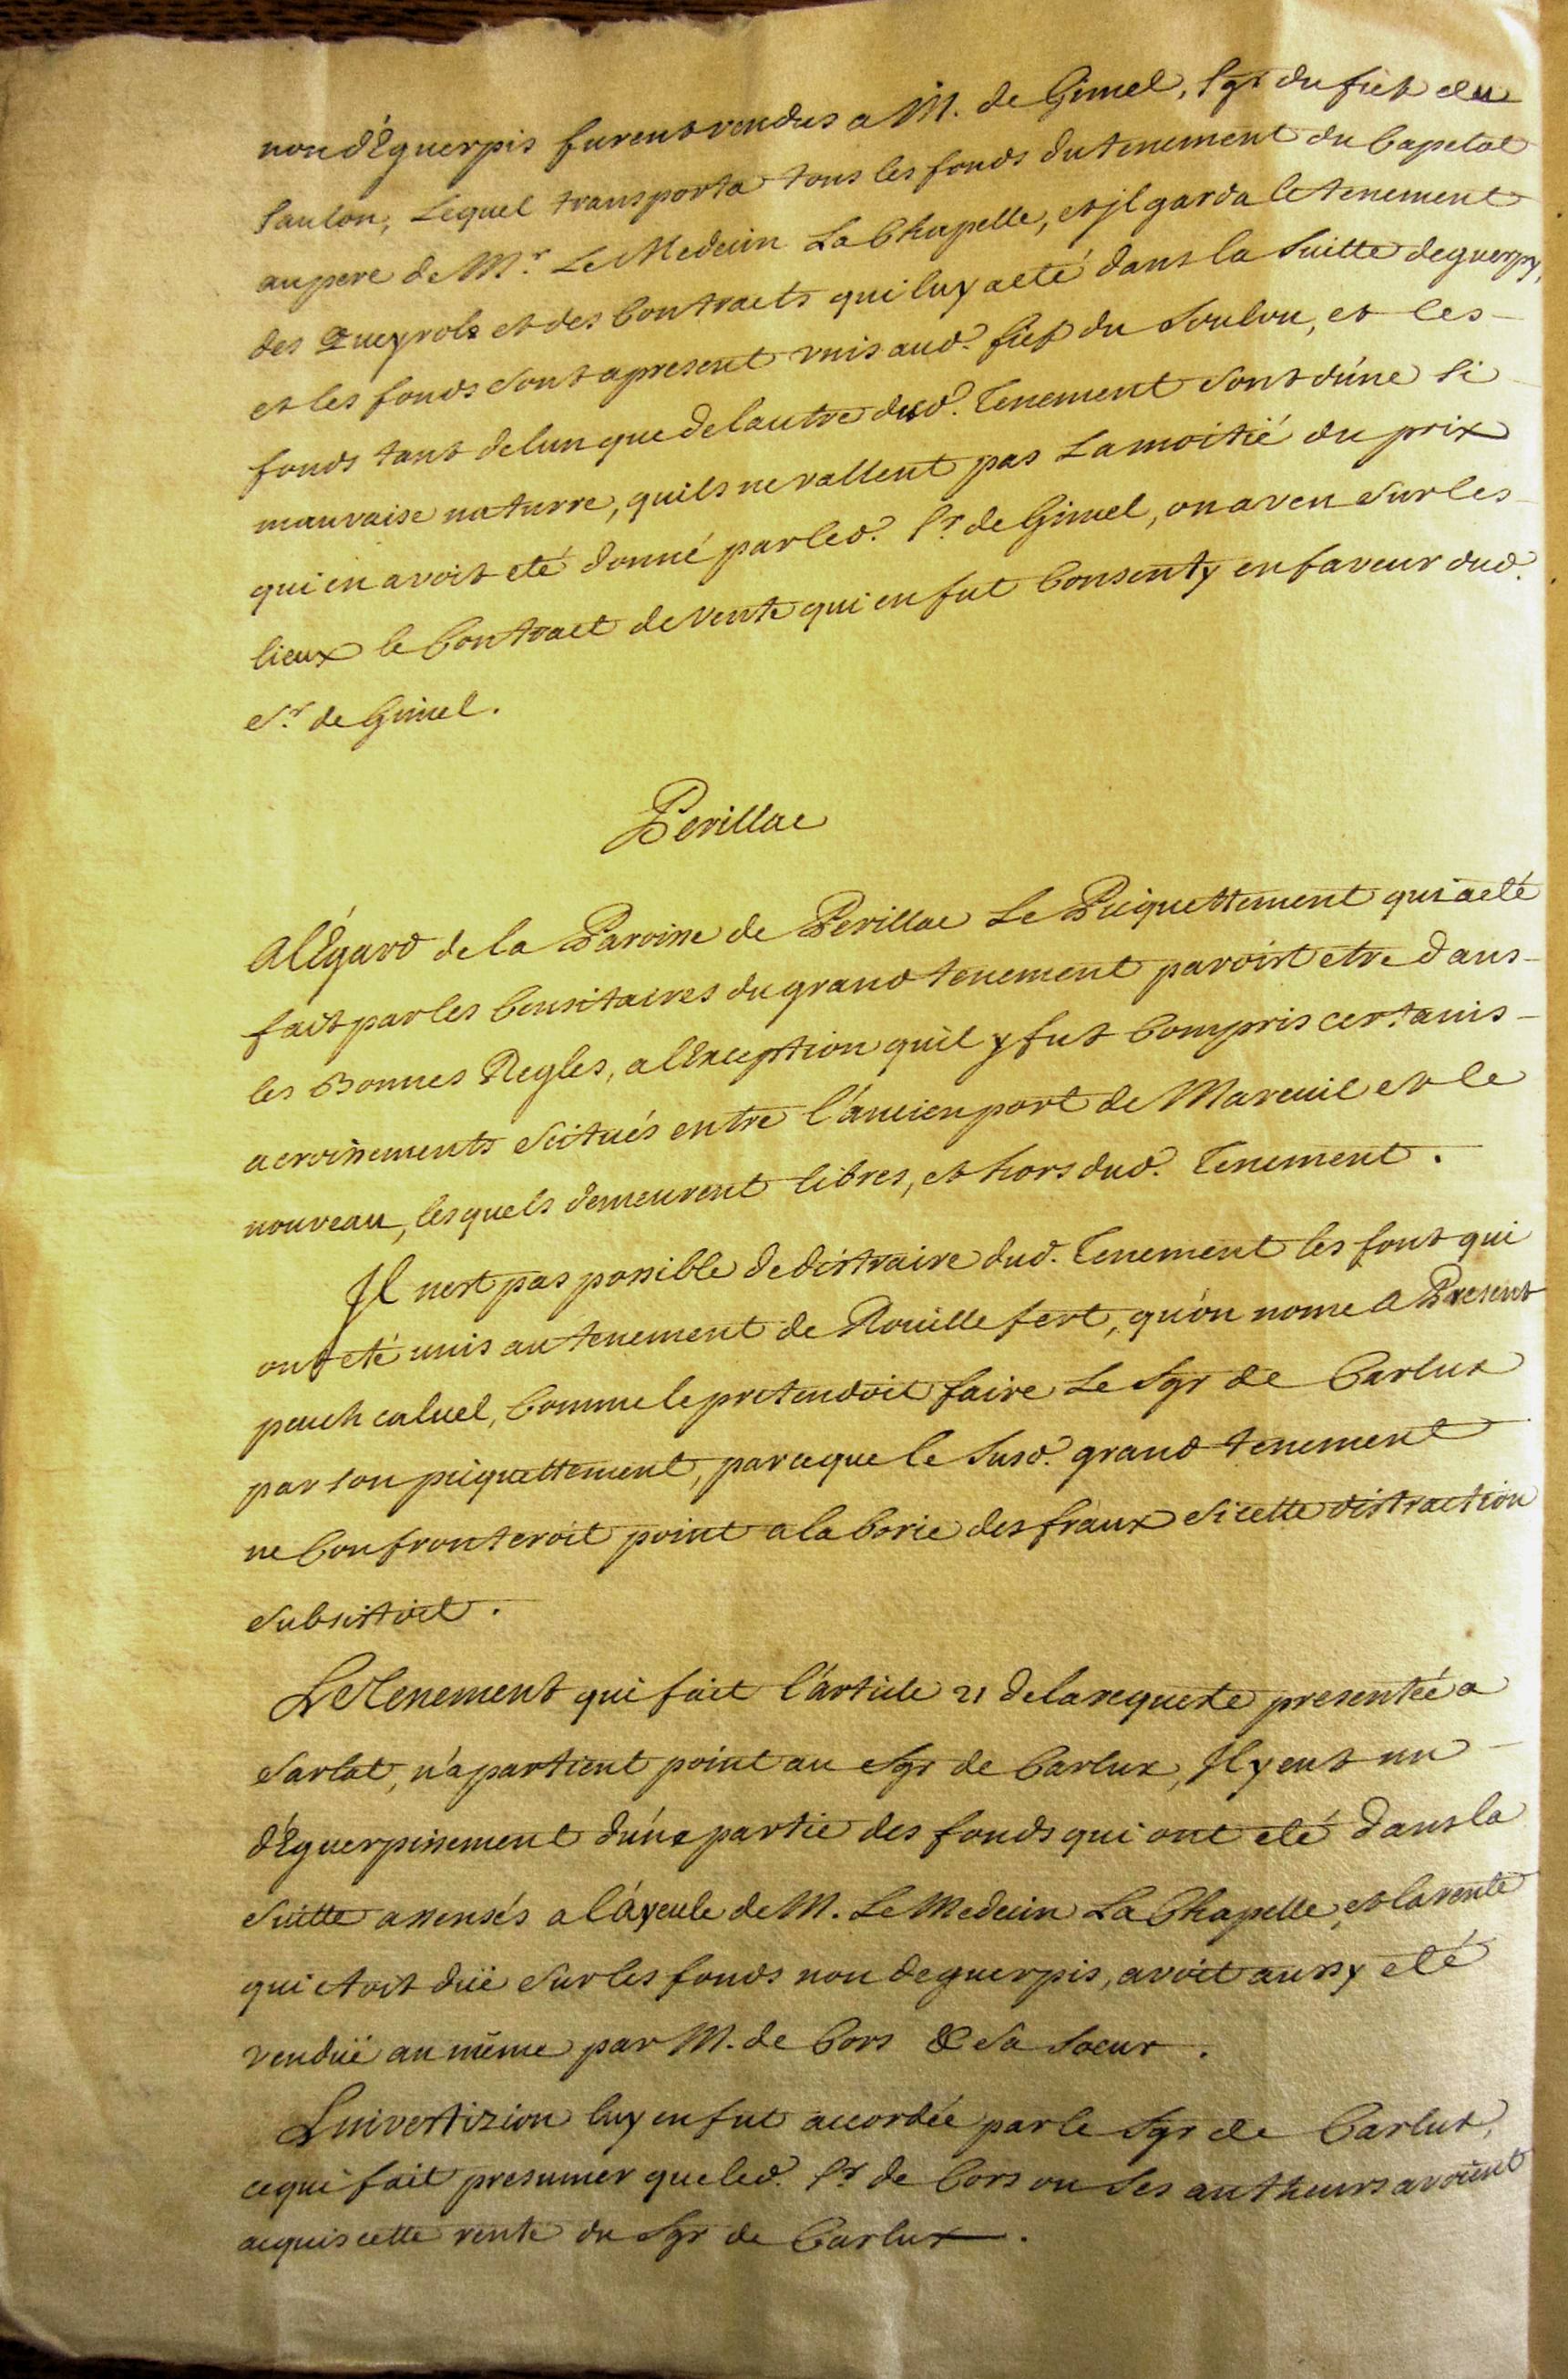 non d'Eguerpis furent vendus a M. de Gimel, Sgr du fief du
Saulon, Lequel transporta tous les fonds du tenement du Capelat
au pere de Mr. Le Medecin La Chapelle, et jl garda le tenement
des Queyrols et des Contracts qui luy a eté dans la Suitte deguerpy,
et les fonds sont apresent unis aud. fief du Soulon, et les
fonds tant de lun que de lautre dud. Tenement sont dúne si
mauvaise naturre, quils ne vallent pas La moitié du prix
qui en avoit eté donné par led. Sr. de Gimel, on a veu sur les
lieux le Contract de Vente qui en fut Consenty en faveur dud.
Sr. de Gimel.
Perillac
A lÉgard de la Paroisse de Perillac Le Piquettement qui a eté
fait par les Censitaires du grand tenement paroist etre dans
les Bonnes Regles, a lException quìl y fut Compris certains
acroissements scitués entre l'áncien port de Mareuil et le
nouveau, lesquels demeurent libres, et hors dud. Tenement.
Jl nest pas possible de distraire dud. Tenement les font qui
ont eté unis au tenement de Rouillefert, qu'on nome A Present
peuch caluel, Comme le pretendoit faire Le Sgr de Carlux
par son piquettement, parceque le Susd. grand tenement
ne Confronteroit point a la borie des fraux si cette distraction
Subsistoit.
Le Tenement qui fait l'article 21 de la requeste presentée a
Sarlat, n'apartient point au Sgr de Carlux, Jl y eut un
d'Eguerpissement dúne partie des fonds qui ont eté dans la
Suitte assensés a l'áyeule de M. Le Medecin La Chapelle, et la rente
qui etoit düe sur les fonds non deguerpis, avoit aussy eté
vendüe au même par M. de Cors & sa Soeur.
Linvestizion luy en fut accordée par le Sgr de Carlux,
ce qui fait presumer que led. Sr de Cors ou ses autheurs avoient
acquis cette rente du Sgr de Carlux.